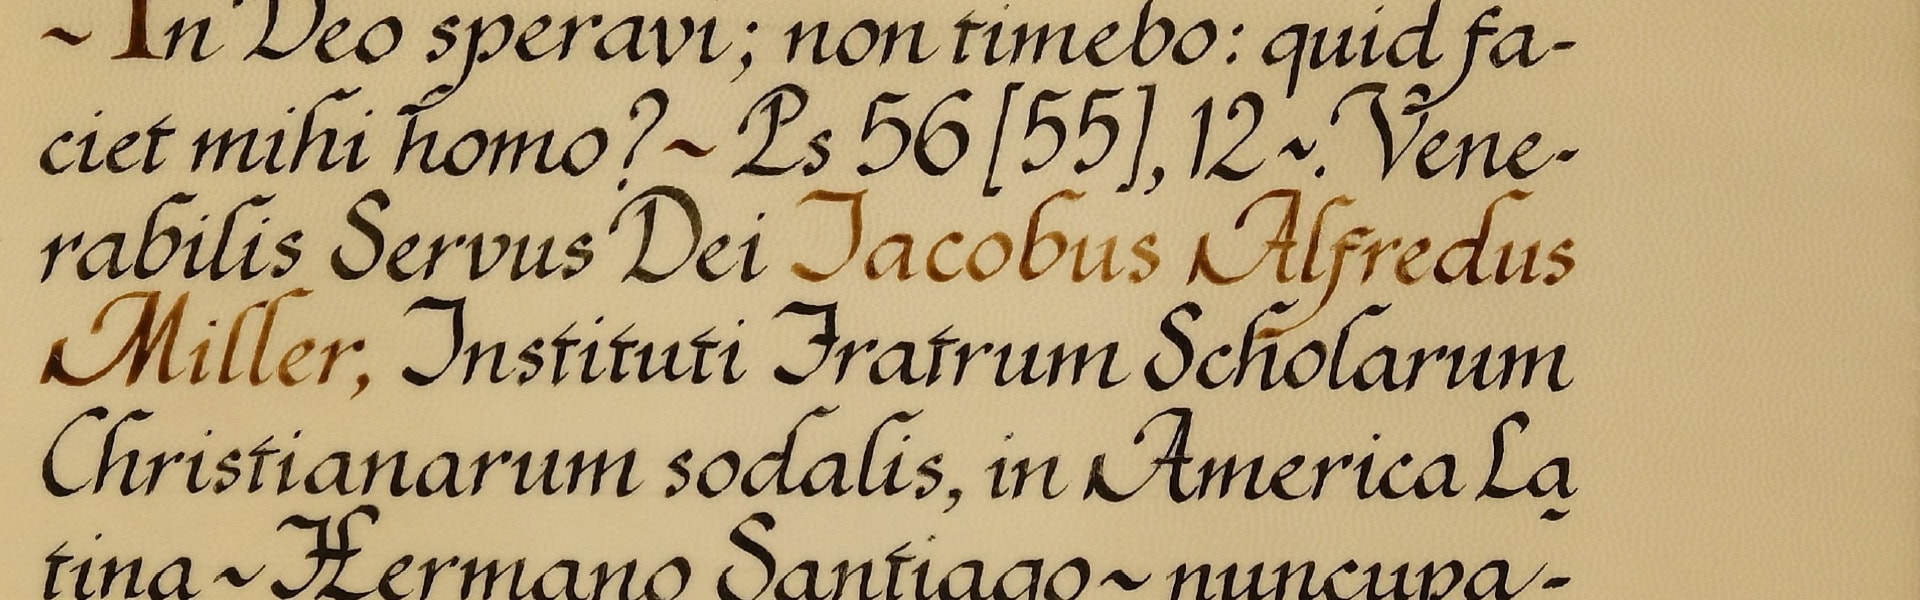 ~ In Deo speravi; non timebo: quid fa-
ciet mihi homo? ~ Ps 56 [55], 12 ~. Vene-
rabilis Servus Dei Iacobus Alfredus
Miller, Instituti Fratrum Scholarum
Christianarum sodalis, in America La
tina ~ Hermano Santiago ~ nuncupa-